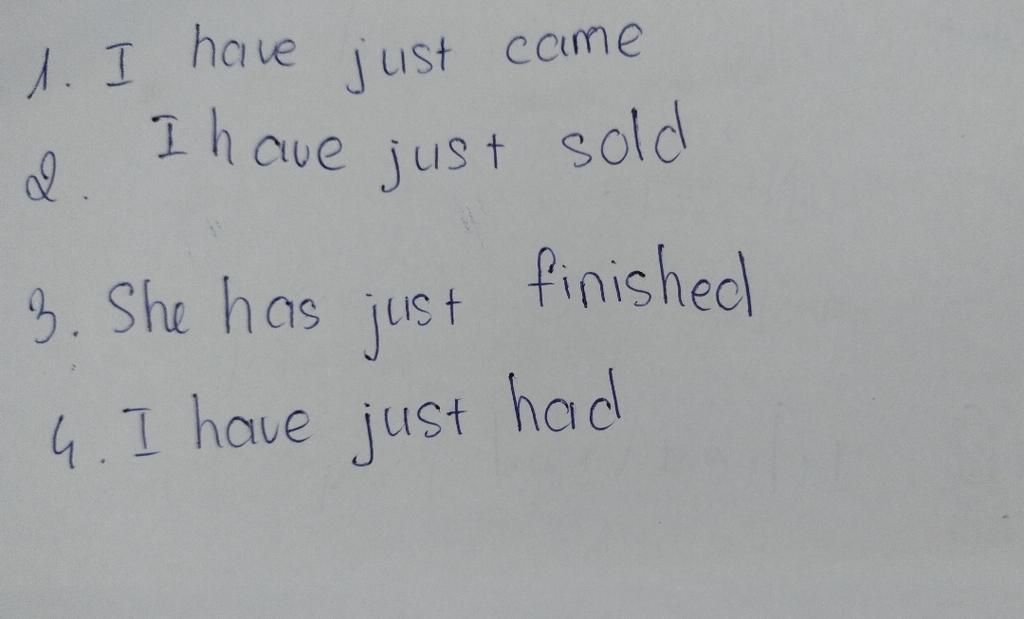 1. I have just came
2. I have just sold
3. She has just finished
4. I have just had